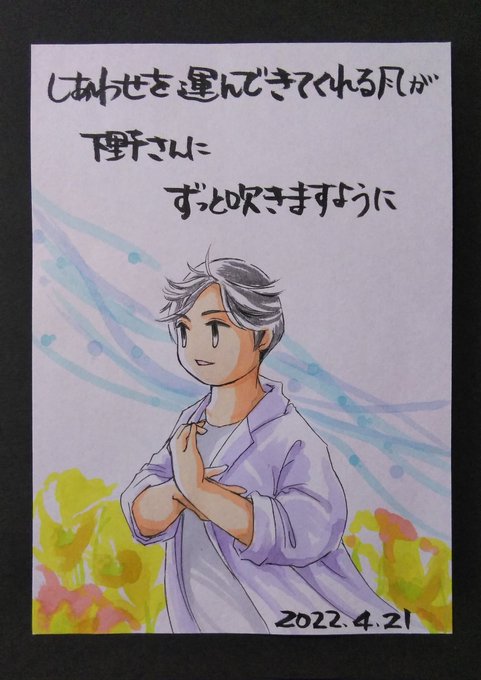 しあわせを運んできてくれる風が
下野さんに
ずっと吹きますように
2022.4.21